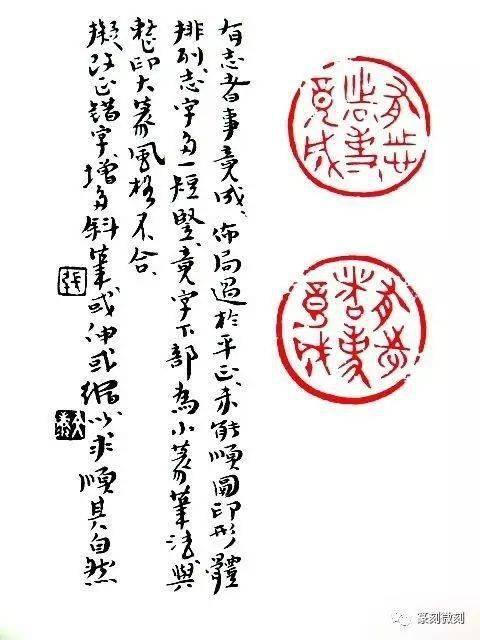 有志者事竟成佈局過於平正未能順圓印形體
排列志字多一短竪竟字下部為小篆筆法與
整印大篆風格不合
擬改正錯字增多斜筆或伸或縮以求順其自然
張
有志者事竟成
有志者事竟成
篆刻微刻